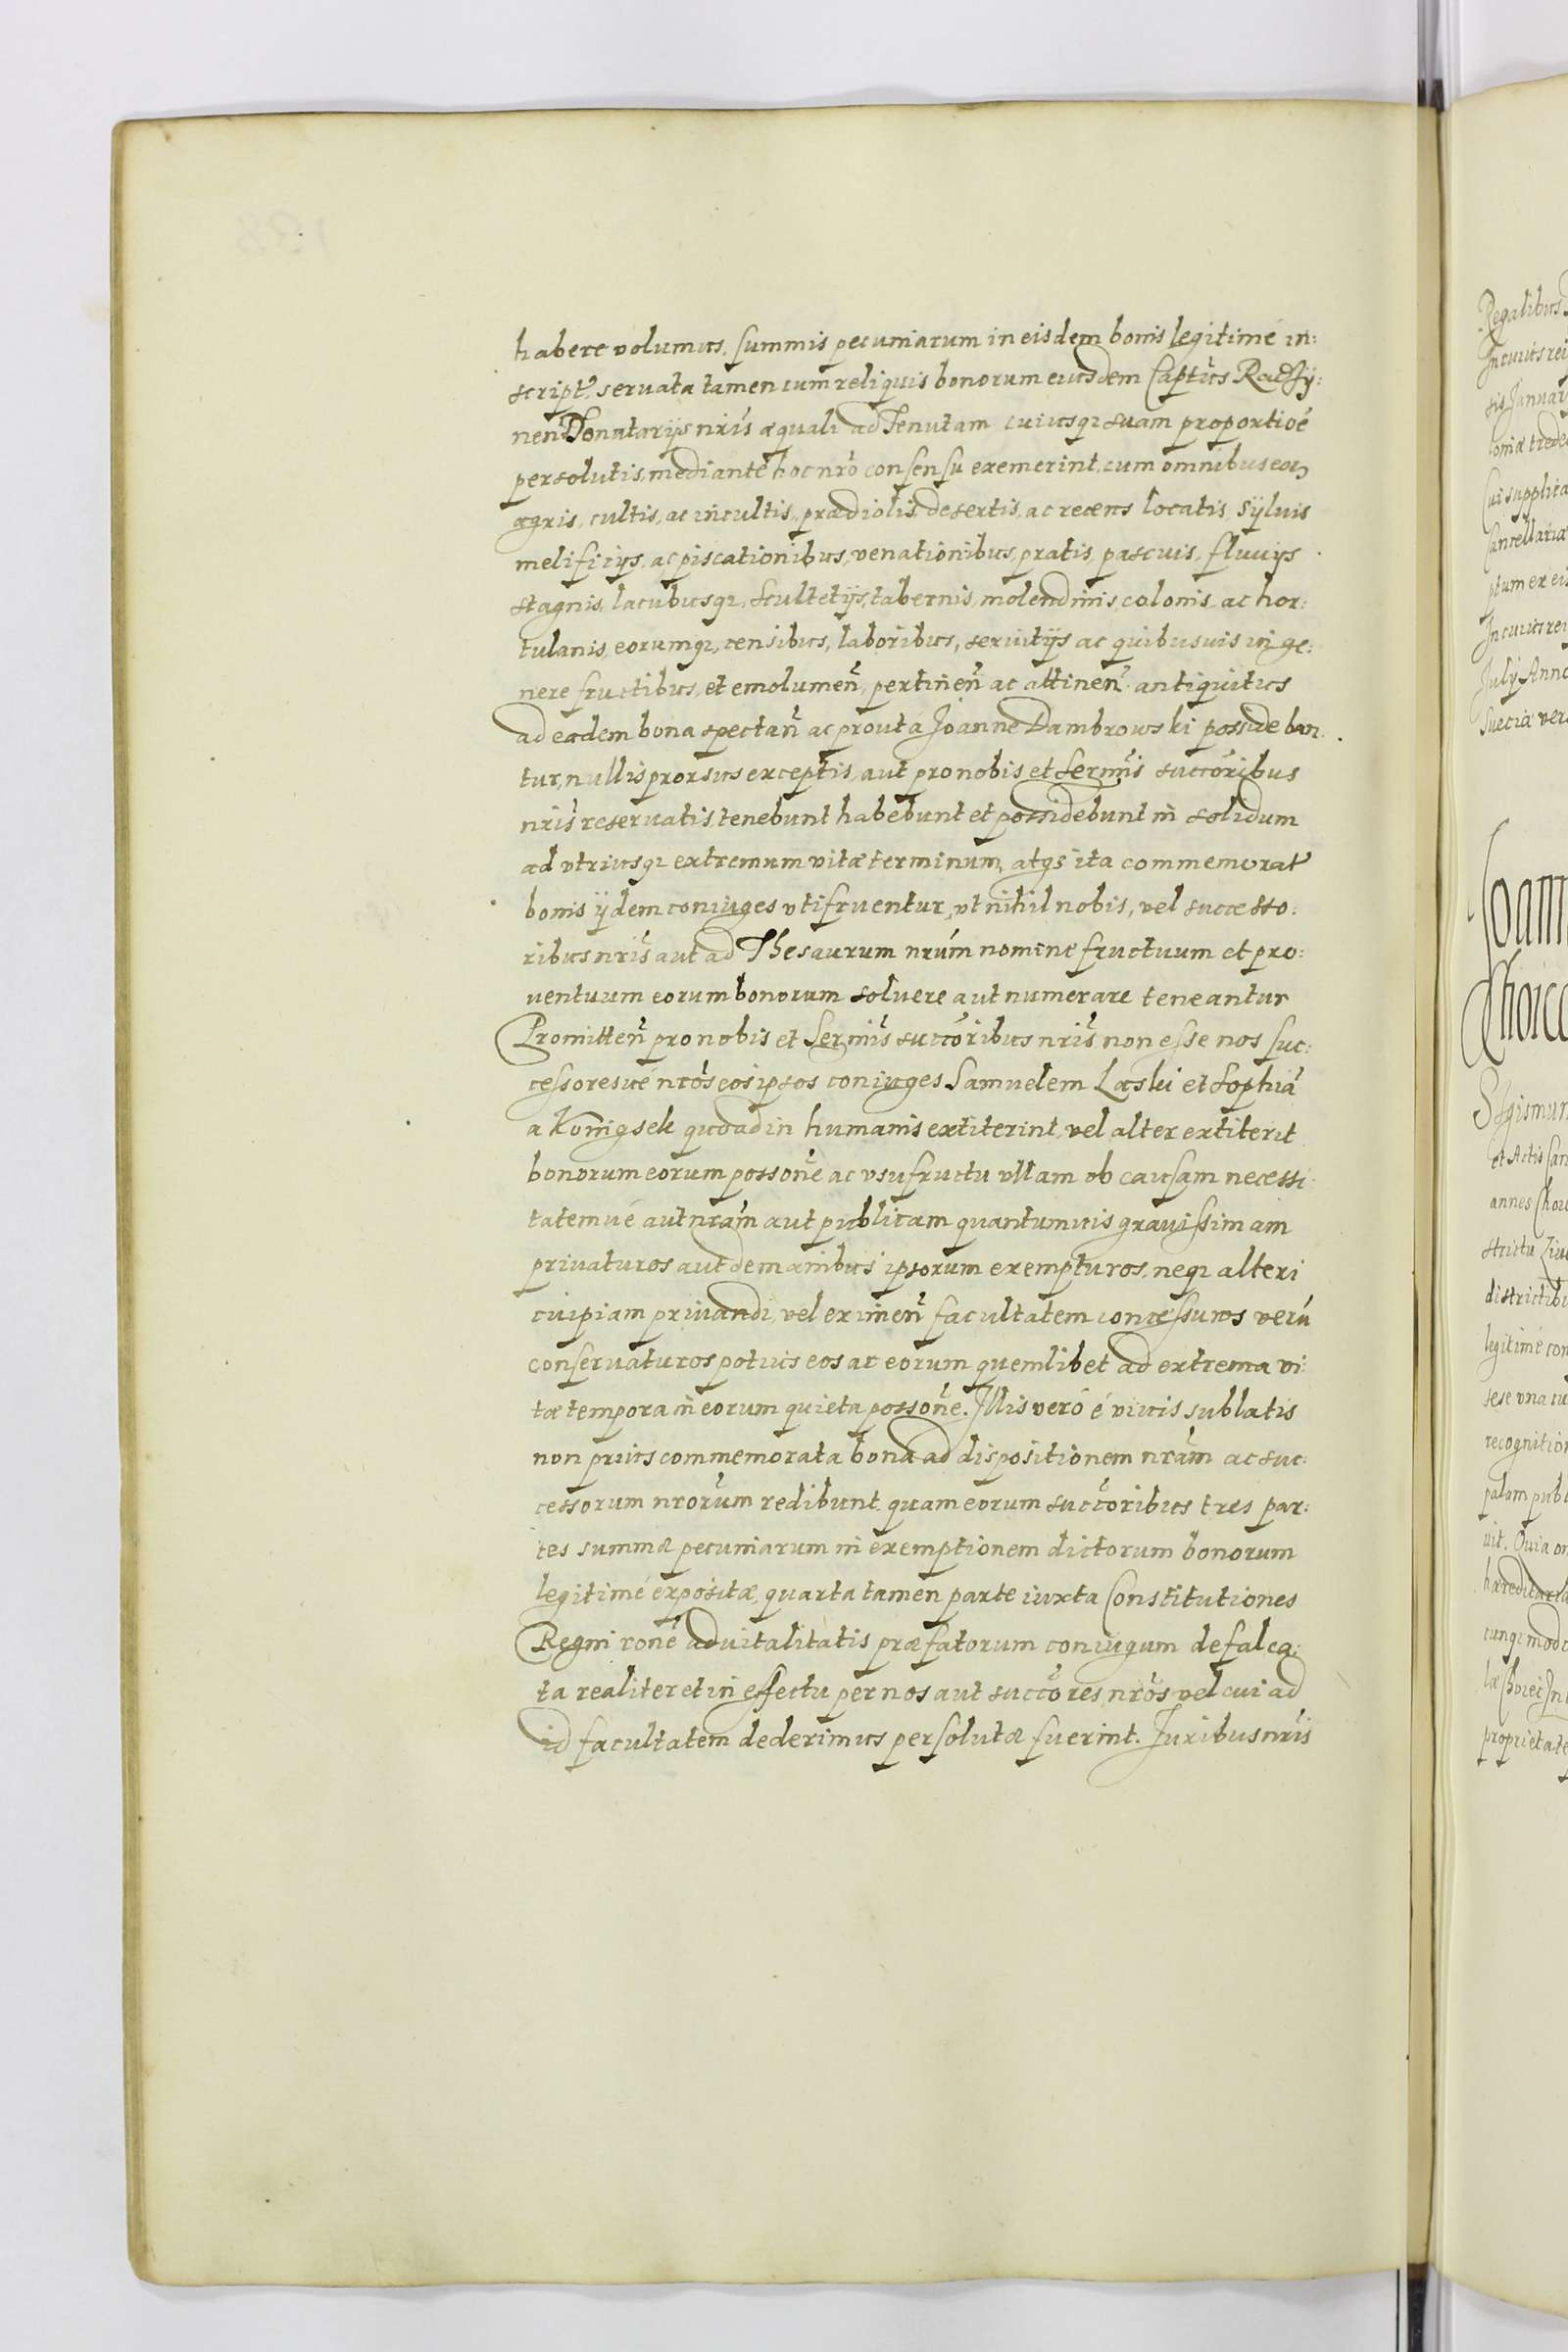 habere volumus, summis pecuniarum in eisdem bonis legitimé in:
script̃ servata tamen cum reliquis bonorum eiusdem Capt̃us Radzÿ:
neñ Donatarÿs nris̃ æquali ad Tenutam cuiusq₃ suam proportioẽ
persolutis, mediante hoc nrõ consensu exemerint, cum omnibus eoꝝ
agris, cultis, ac incultis, prædiolis desertis, ac recens locatis, sÿluis
melificiÿs, ac piscationibus, venationibus, pratis, pascuis, fluuÿs
stagnis, lacubusq₃, scultetÿs, tabernis, molendinis, colonis, ac hor:
tulanis, eorumq₃, censibus, laboribus, seruitÿs ac quibusuis in ge:
nere fructibus, et emolumeñ, pertineñ ac attineñ antiquitus
ad eadem bona spectañ ac prout a Joanne Dambrowski posside ban:
tur, nullis prorsus exceptis, aut pro nobis et Sermĩs succõribus
nris̃ reseruatis, tenebunt habebunt et possidebunt in solidum
ad vtriusq₃ extremum vitæ terminum, atq₃ ita commemorat̃
bonis ÿdem coniuges vtifruentur, vt nihil nobis, vel successo:
ribus nris̃ aut ad Thesaurum nrũm nomine fructuum et pro:
uentuum eorum bonorum soluere aut numerare teneantur
Promitteñ pro nobis et Sermĩs succõribus nris̃ non esse nos suc:
cessoresué nrõs eos ipsos coniuges Samuelem Laski et Sophiã
a Konigsek quoad in humanis extiterint, vel alter extiterit
bonorum eorum possonẽ ac vsufructu vllam ob causam necessi:
tatemué aut nrãm aut publicam quantumuis grauissimam
priuaturos aut de manibus ipsorum exempturos, neq₃ alteri
cuipiam priuandi, vel eximeñ facultatem concessuros verũ
conseruaturos potius eos ac eorum quemlibet ad extrema vi:
tæ tempora in eorum quieta possonẽ. Illis veró é viuis sublatis
non prius commemorata bona ad dispositionem nrãm ac suc:
cessorum nrorũm redibunt, quam eorum succõribus tres par:
tes summæ pecuniarum in exemptionem dictorum bonorum
legitimé expositæ, quarta tamen parte iuxta Constitutiones
Regni ronẽ aduitalitatis præfatorum coniugum defalca:
ta realiter et in effectu per nos aut succõres nrõs vel cui ad
id facultatem dederimus persolutæ fuerint. Juribus nris̃